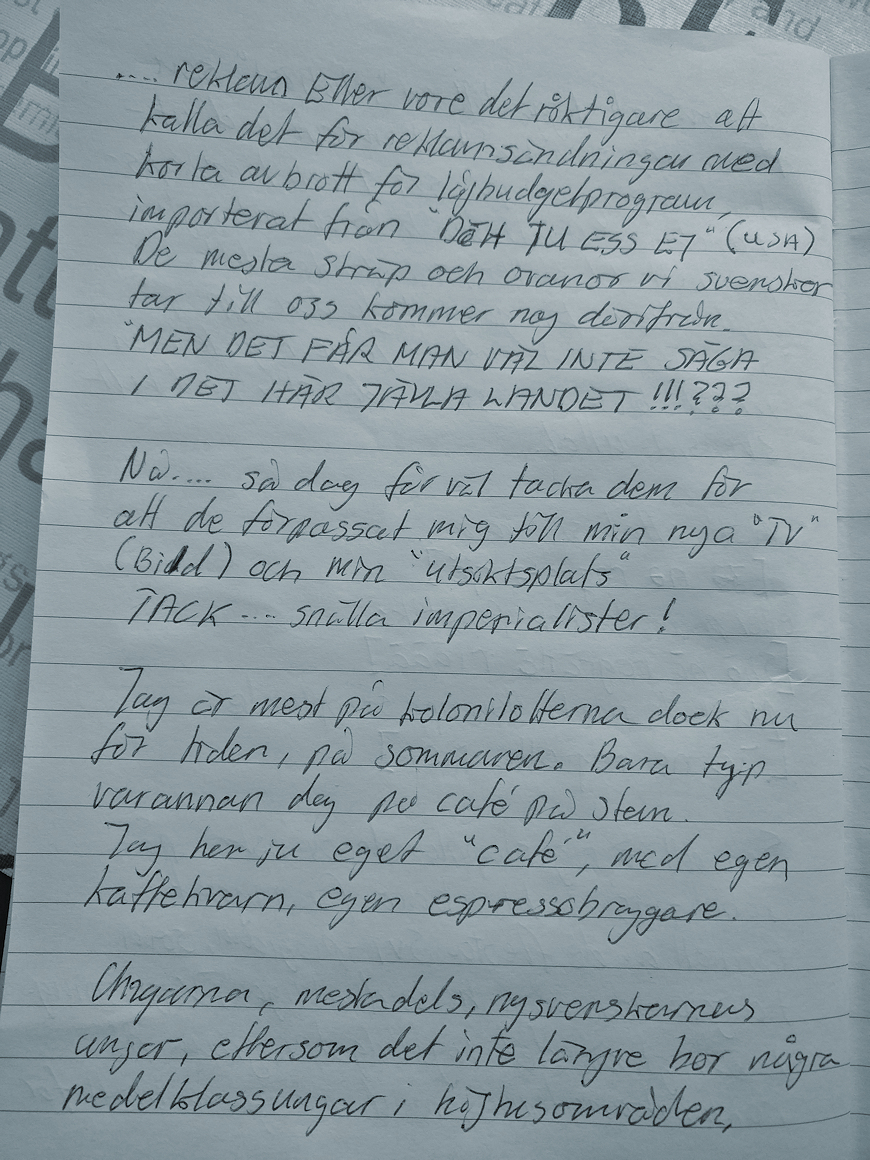 .... reklam Eller vore det riktigare att
kalla det för reklamsändningar med
korta avbrott för lågbudgetprogram,
importerat från "DÖH JU ESS EJ" (USA)
De mesta skräp och ovanor vi svenskar
tar till oss kommer nog därifrån.
"MEN DET FÅR MAN VÄL INTE SÄGA
I DET HÄR JÄVLA LANDET !!!???
Nå.... så jag får väl tacka dem för
att de förpassat mig till min nya "TV"
(Bild) och min "utsiktsplats"
TACK .... snälla imperialister!
Jag är mest på kolonilotterna dock nu
för tiden, på sommaren. Bara typ
varannan dag på café på stan.
Jag har ju eget "café", med egen
kaffekvarn, egen espressobryggare.
Ungarna, mestadels, nysvenskarnas
ungar, eftersom det inte längre bor några
medelklassungar i höghusområden,